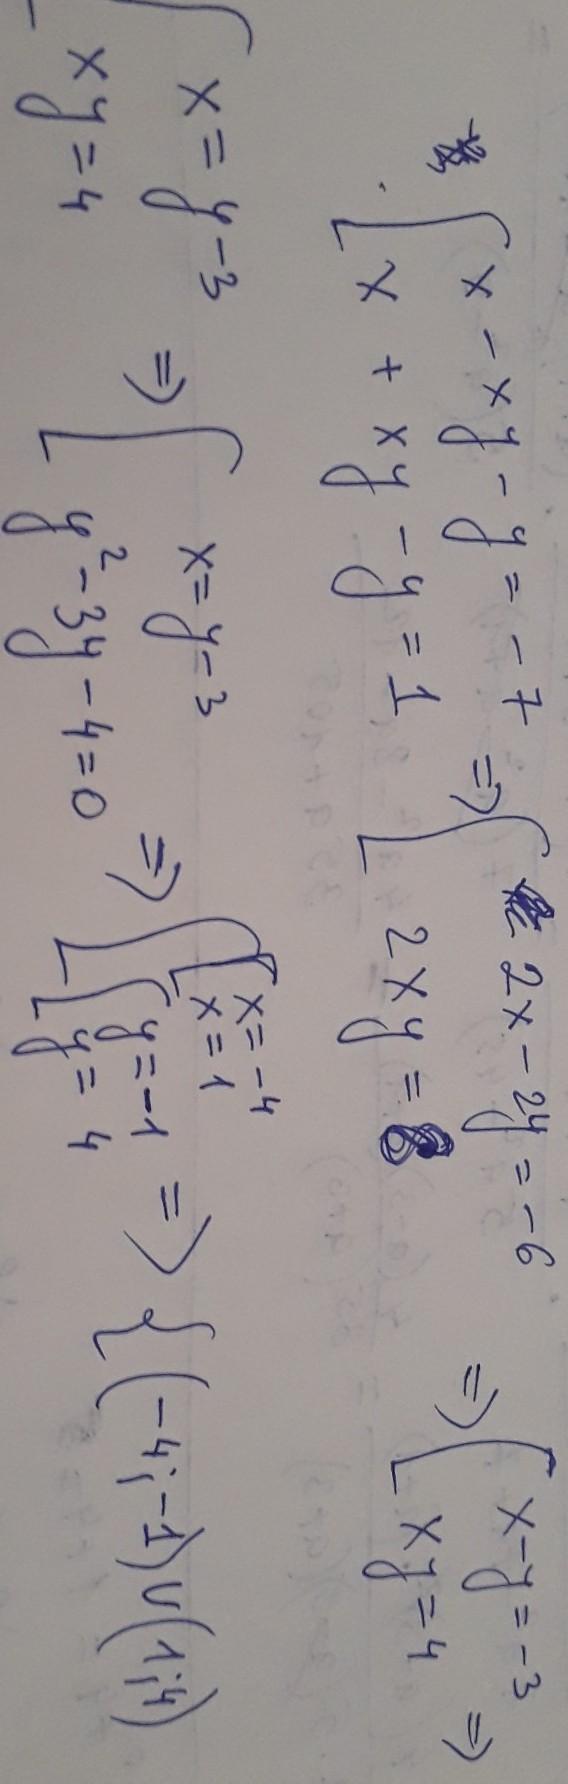 { x - xy - y = -7
{ x + xy - y = 1
=> { 2x - 2y = -6
{ 2xy = 8
=> { x - y = -3
{ xy = 4
=>
{ x = y - 3
{ xy = 4
=> { x = y - 3
{ y² - 3y - 4 = 0
=> { [ x = -4
[ x = 1
{ [ y = -1
[ y = 4
=> { (-4; -1) ∪ (1; 4)